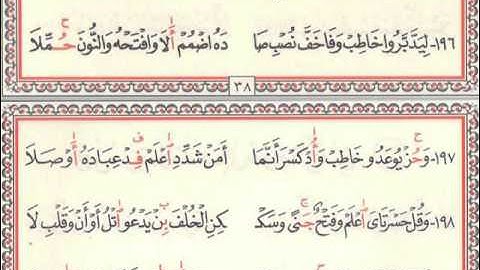 ١٩٦- لِيَدَّبَّرُوا خَاطِبْ وَفَا خَفَّ نُصْبِ صَا دَهُ اضْمُمْ أَلَا وَافْتَحْهُ وَالنُّونَ حُمِّلَا
٣٨
١٩٧- وَحُزْ يُوعَدُو خَاطِبْ وَأُدْ كَسْرَ أَنَّمَا أَمَنْ شَدِّدِ اعْلَمْ فِدْ عِبَادَهُ أَوْصَلَا
١٩٨- وَقُلْ حَسْرَتَايَ اعْلَمْ وَفَتْحٌ جَنًى وَسَكْ كِنِ الْخُلْفَ بِنْ يَدْعُو اتْلُ أَوْ أَنْ وَقَلْبِ لَا